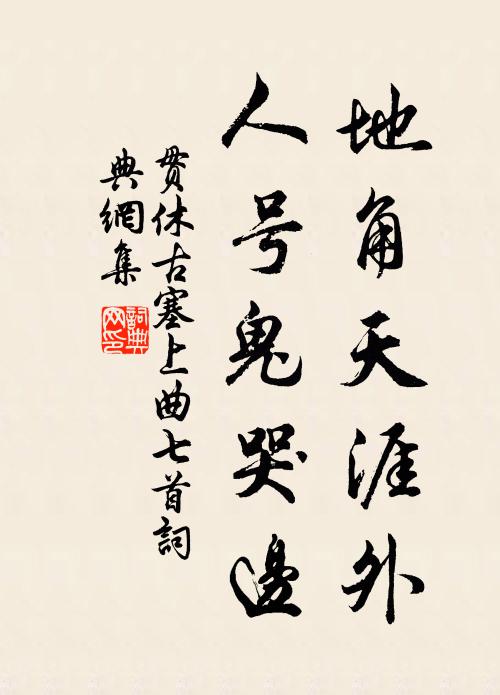 地角天涯外
人号鬼哭邊
貫休古塞上曲七首詞
典網集
詞典网印